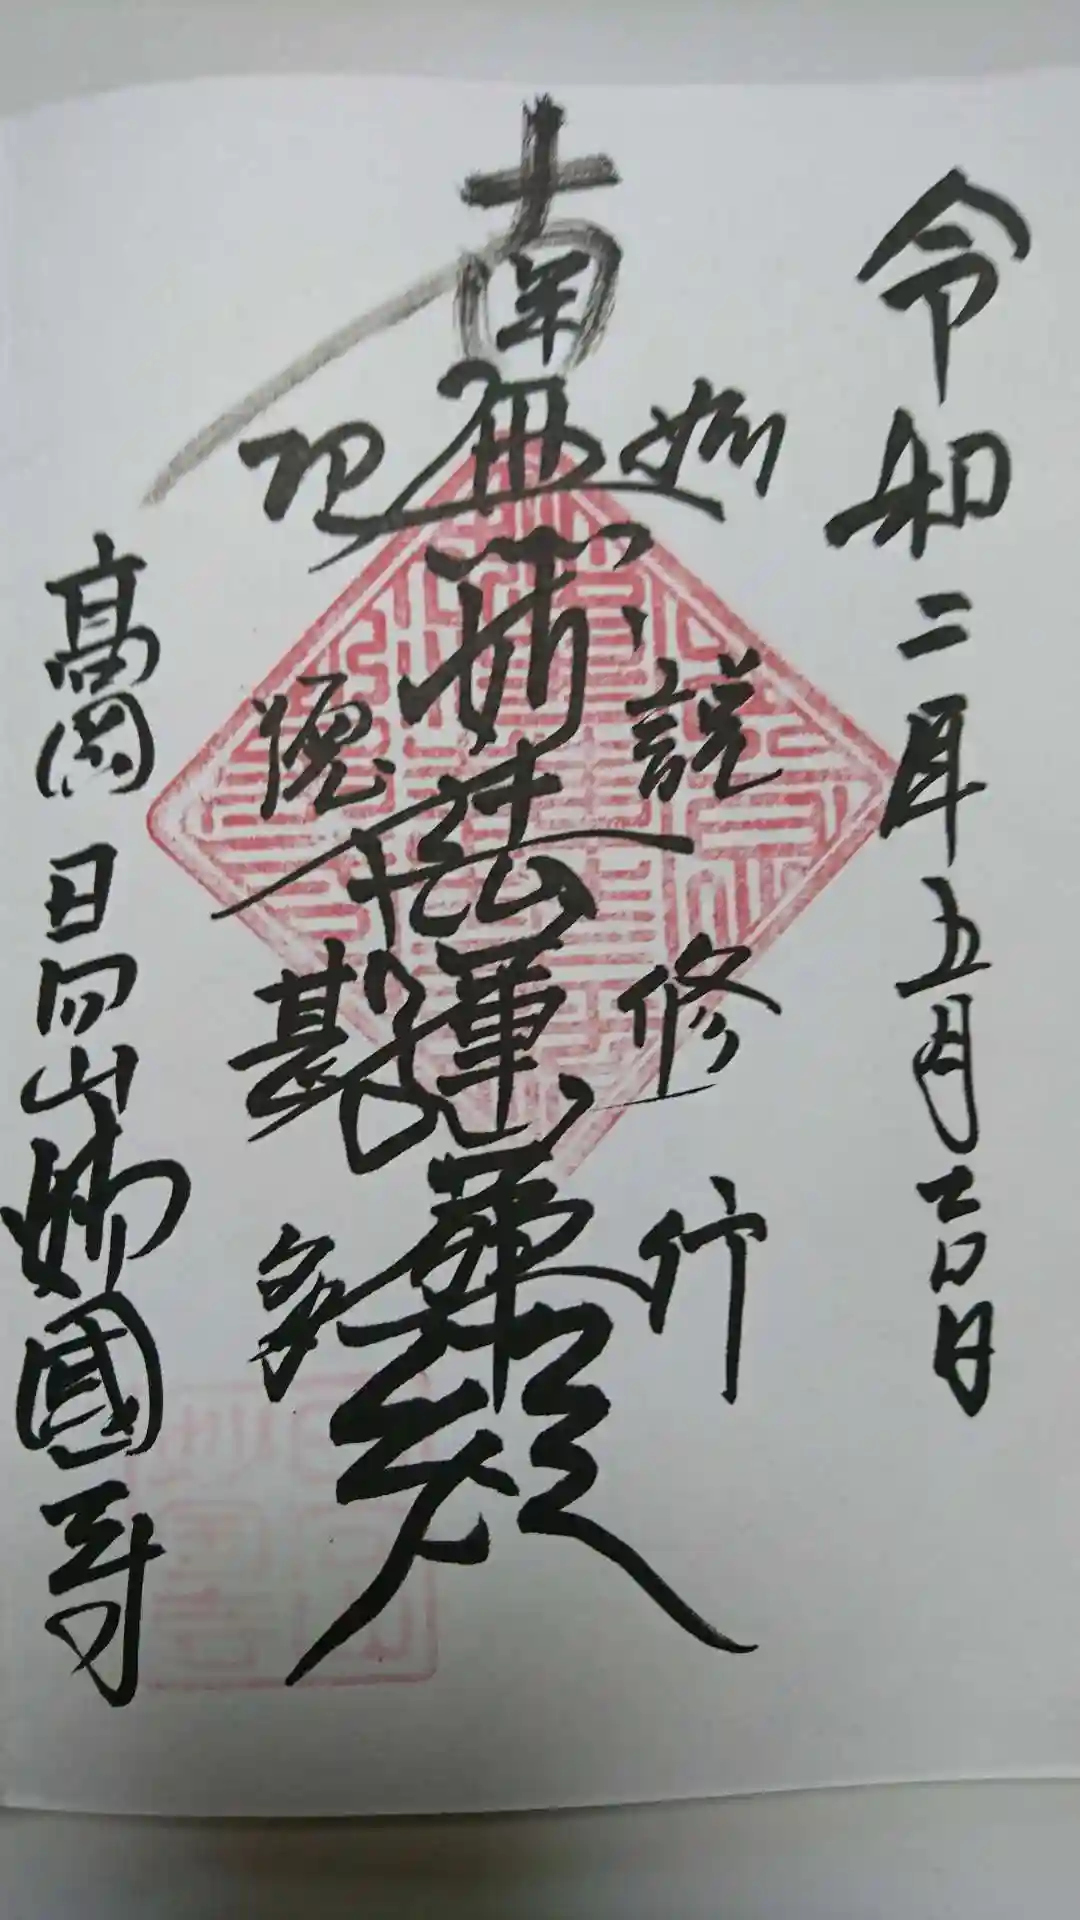 令和二年五月吉日
如説修行
南無妙法蓮華経
功徳甚多
高岡 日向山 妙國寺